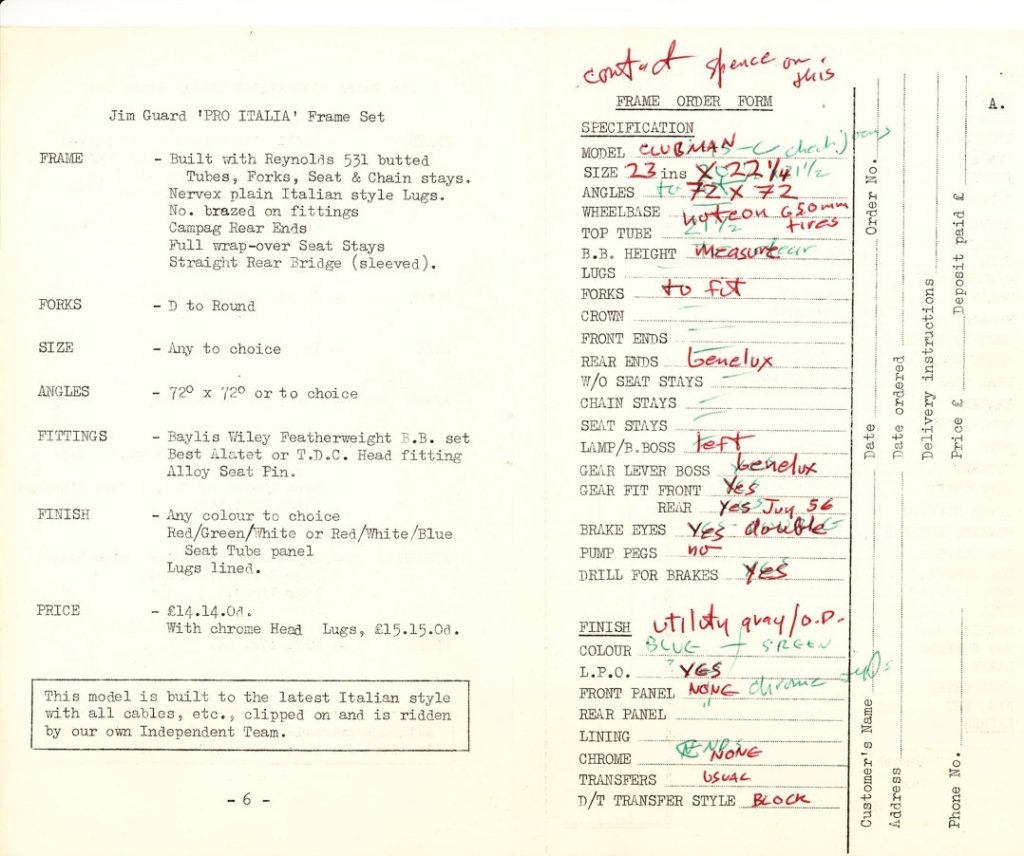 Jim Guard 'PRO ITALIA' Frame Set
FRAME - Built with Reynolds 531 butted
Tubes, Forks, Seat & Chain stays.
Nervex plain Italian style Lugs.
No. brazed on fittings
Campag Rear Ends
Full wrap-over Seat Stays
Straight Rear Bridge (sleeved).
FORKS - D to Round
SIZE - Any to choice
ANGLES - 72° x 72° or to choice
FITTINGS - Baylis Wiley Featherweight B.B. set
Best Alatet or T.D.C. Head fitting
Alloy Seat Pin.
FINISH - Any colour to choice
Red/Green/White or Red/White/Blue
Seat Tube panel
Lugs lined.
PRICE - £14.14.0d.
With chrome Head Lugs, £15.15.0d.
This model is built to the latest Italian style
with all cables, etc., clipped on and is ridden
by our own Independent Team.
- 6 -
contact spence on
this
FRAME ORDER FORM
A.
SPECIFICATION
MODEL CLUBMAN
SIZE 23 ins X 22 1/4 21 1/2
ANGLES to 72 X 72
WHEELBASE 650mm
tires
TOP TUBE 21 1/2
B.B. HEIGHT measure
LUGS
FORKS to fit
CROWN
FRONT ENDS
REAR ENDS benelux
W/O SEAT STAYS
CHAIN STAYS
SEAT STAYS
LAMP/B.BOSS left
GEAR LEVER BOSS benelux
GEAR FIT FRONT Yes
REAR Yes Juy 56
BRAKE EYES Yes double
PUMP PEGS no
DRILL FOR BRAKES YES
FINISH utility gray/O.D.
COLOUR BLUE GREEN
L.P.O. ? YES
FRONT PANEL NONE chrome
REAR PANEL "
LINING
CHROME ENDS NONE
TRANSFERS USUAL
D/T TRANSFER STYLE BLOCK
Customer's Name Date Order No.
Address Date ordered
Delivery instructions
Phone No. Price £ Deposit paid £